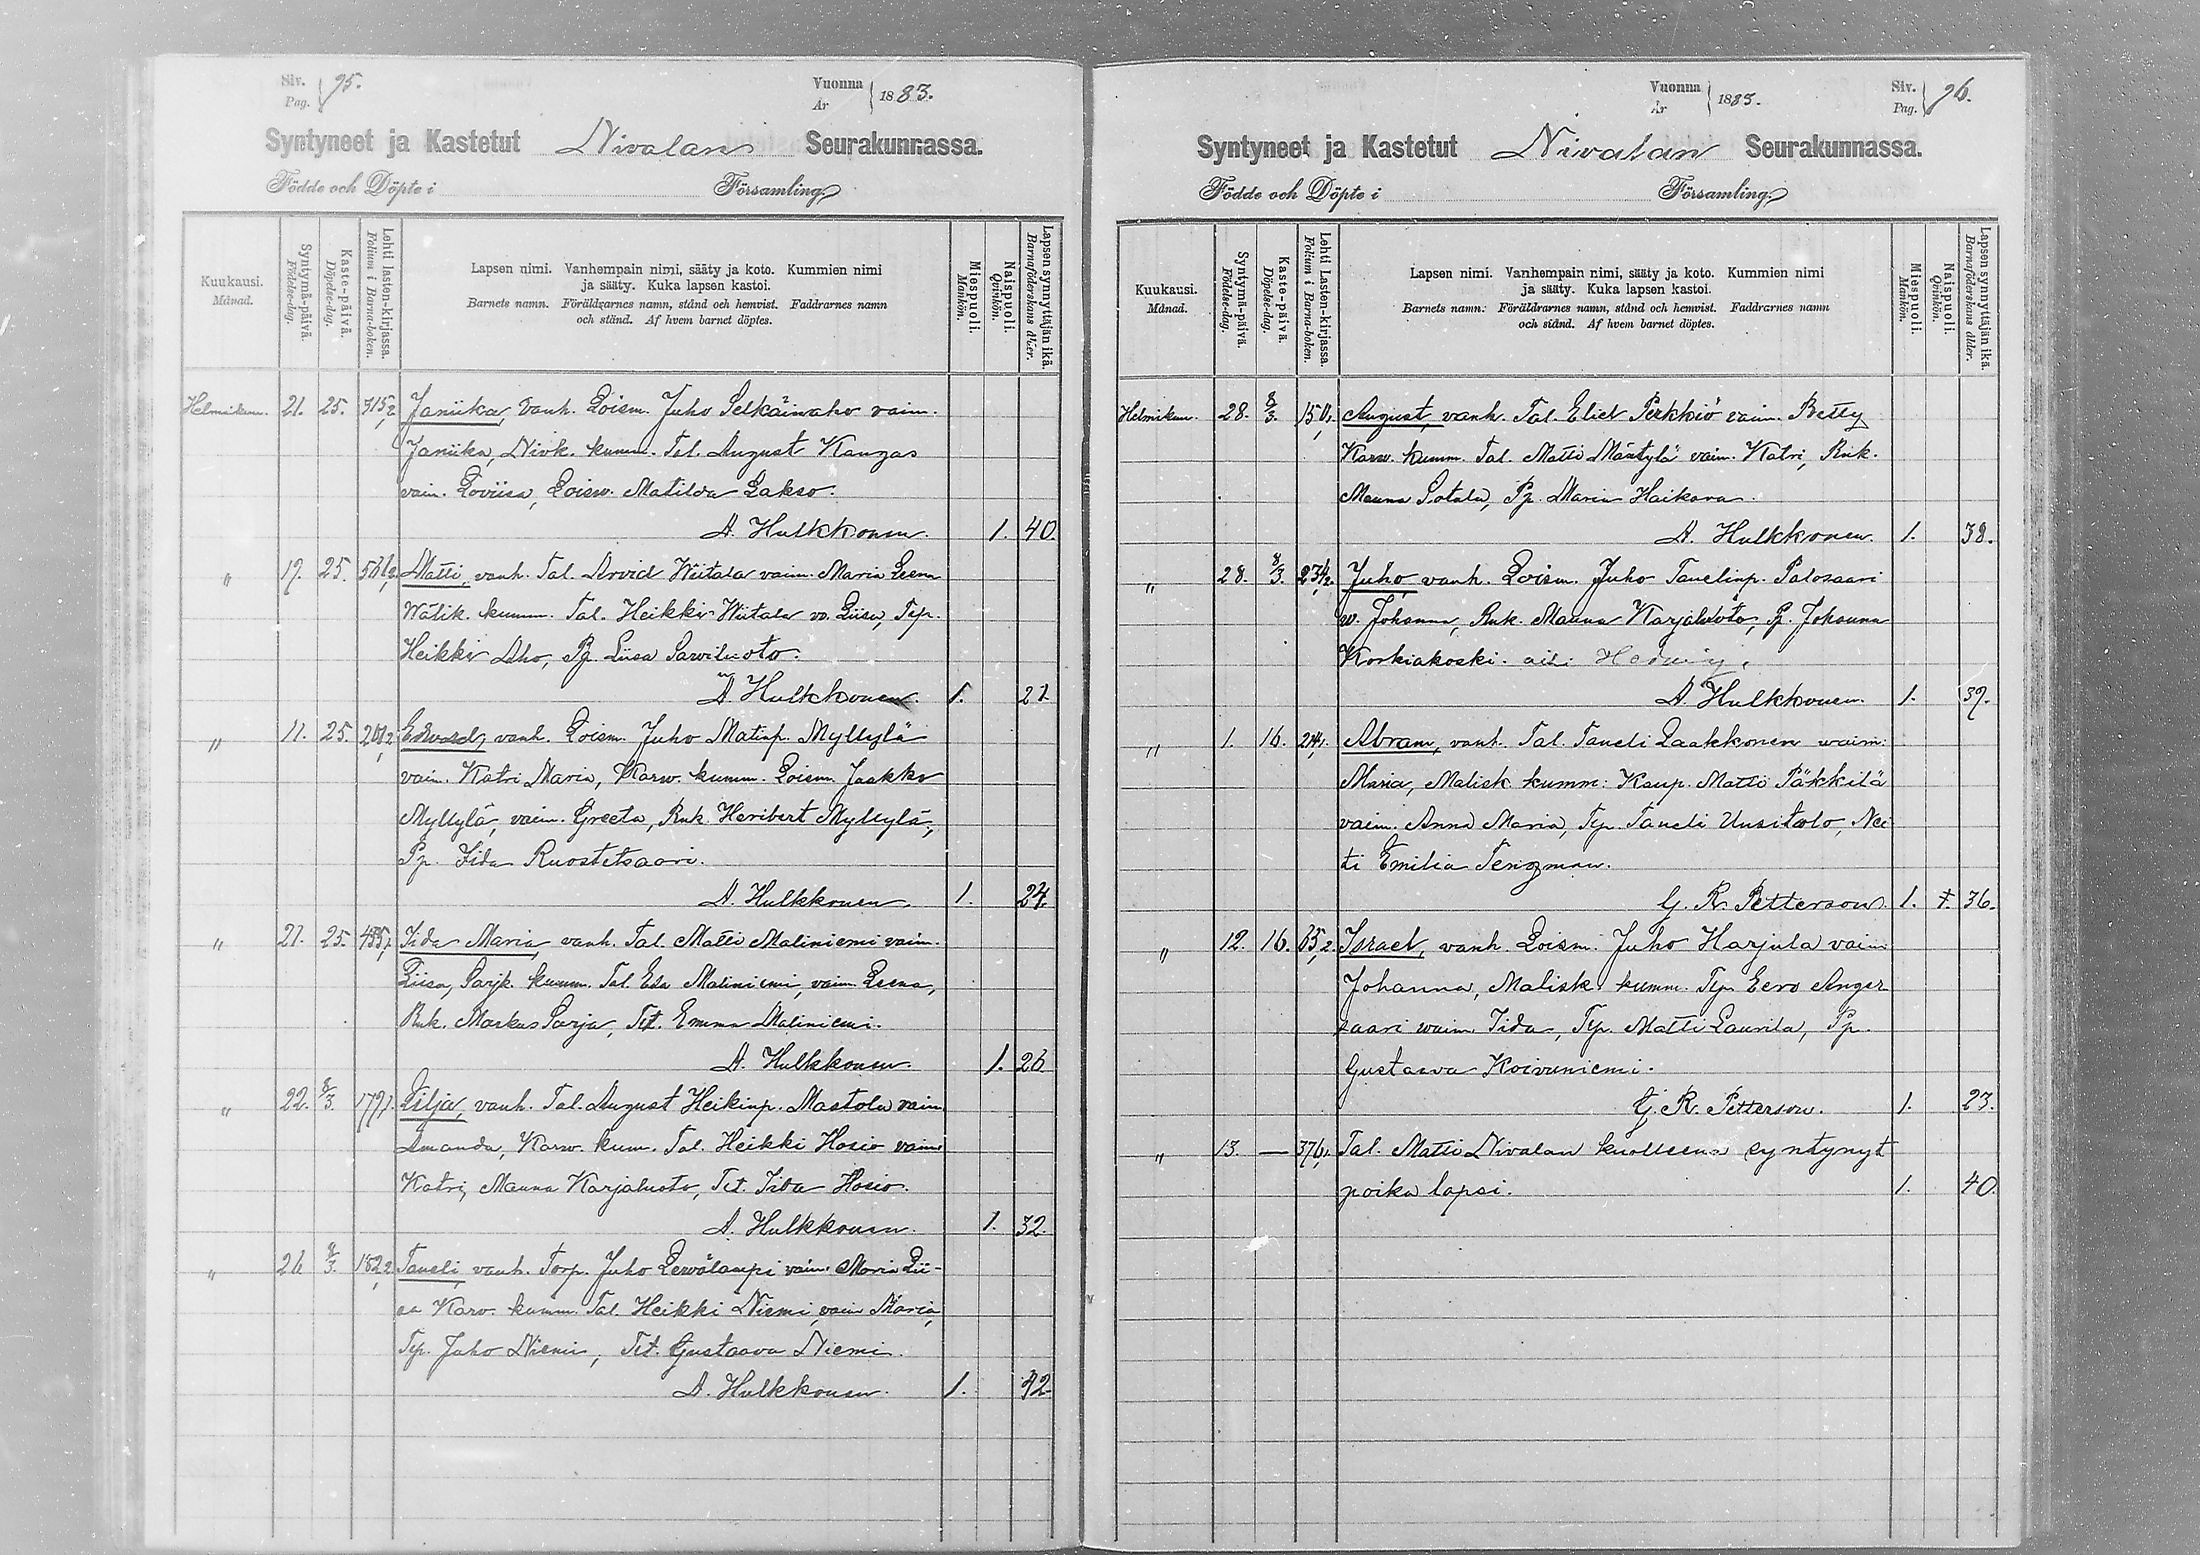 Siv. Pag. 95.
Vuonna År 1883.
Syntyneet ja Kastetut Nivalan Seurakunnassa.
Födde och Döpte i Församling
Kuukausi. Månad.
Syntymä-päivä. Födelse-dag.
Kaste-päivä. Döpelse-dag.
Lehti lasten-kirjassa. Folium i Barna-boken.
Lapsen nimi. Vanhempain nimi, sääty ja koto. Kummien nimi
ja sääty. Kuka lapsen kastoi.
Barnets namn. Föräldrarnes namn, stånd och hemvist. Faddrarnes namn
och stånd. Af hvem barnet döptes.
Miespuoli. Mankön.
Naispuoli. Qvinkön.
Lapsen synnyttäjän ikä. Barnaföderskans ålder.
Helmikuu. 21. 25. 315,2 Janiika, vanh. Loism. Juho Selkäinaho vaim.
Janiika, Nivk. kumm. Tal. August Kangas
vaim. Loviisa, Loisw. Matilda Lakso.
A. Hulkkonen. 1. 40.
" 19. 25. 561,2 Matti, vanh. Tal. Arvid Wiitala vaim. Maria Leena
Wälik. kumm. Tal. Heikki Wiitala vo. Liisa, Tlp.
Heikki Aho, Pp. Liisa Sarviluoto.
A. Hulkkonen. 1. 21.
" 11. 25. 201,2 Edvard, vanh. Loism. Juho Matinp. Myllylä
vaim. Katri Maria, Karw. kumm. Loism. Jaakko
Myllylä, vaim. Greeta, Rnk. Heribert Myllylä,
Pp. Iida Ruostetsaari.
A. Hulkkonen. 1. 24.
" 21. 25. 455,1. Iida Maria, vanh. Tal. Matti Maliniemi vaim.
Liisa, Sarjk. kumm. Tal. Esa Maliniemi, vaim. Leena,
Rnk. Markus Sarja, Tlt. Emma Maliniemi.
A. Hulkkonen. 1. 26
" 22. 8/3. 179,1. Lilja, vanh. Tal. August Heikinp. Mastola vaim
Amanda, Karw. kum. Tal. Heikki Hosio vaim
Katri, Mauna Karjaluoto, Tlt. Iida Hosio.
A. Hulkkonen. 1. 32.
" 26 8/3. 182,2 Taneli, vanh. Torp. Juho Lewälampi vaim. Maria Lii-
sa Karv. kumm. Tal. Heikki Niemi, vaim Maria,
Tlp. Juho Niemi, Tlt. Gustaava Niemi.
A. Hulkkonen. 1. 42.
Vuonna År 1883.
Siv. Pag. 96.
Syntyneet ja Kastetut Nivalan Seurakunnassa.
Födde och Döpte i Församling
Kuukausi. Månad.
Syntymä-päivä. Födelse-dag.
Kaste-päivä. Döpelse-dag.
Lehti Lasten-kirjassa. Folium i Barna-boken.
Lapsen nimi. Vanhempain nimi, sääty ja koto. Kummien nimi
ja sääty. Kuka lapsen kastoi.
Barnets namn. Föräldrarnes namn, stånd och hemvist. Faddrarnes namn
och stånd. Af hvem barnet döptes.
Miespuoli. Mankön.
Naispuoli. Qvinkön.
Lapsen synnyttäjän ikä. Barnaföderskans ålder.
Helmikuu. 28. 8/3. August, vanh. Tal. Eliel Perkkiö vaim. Betty
Karw. kumm. Tal. Matti Mäntylä vaim. Katri, Rnk.
Mauna Sotala, Pp. Maria Haikara.
A. Hulkkonen. 1. 38.
" 28. 8/3. Juho, vanh. Loism. Juho Tanelinp. Palosaari
w. Johanna, Rnk. Mauna Karjaluoto, Pp. Johanna
Korkiakoski. äiti Hedwig.
A. Hulkkonen. 1. 39.
" 1. 16. Abram, vanh. Tal. Taneli Laakkonen waim.
Maria, Malisk. kumm: Kaup. Matti Päkkilä
vaim. Anna Maria, Tlp. Taneli Uusitalo, Nei
ti Emilia Tengman.
G. R. Petterson. 1. †. 36.
" 12. 16. 65,2. Israel, vanh. Loism. Juho Harjula vaim
Johanna, Malisk. kumm. Tlp. Eero Anger
saari waim. Iida, Tlp. Matti Laurila, Pp.
Gustaava Koivuniemi.
G. R. Petterson. 1. 23.
" 13. — 376,1. Tal. Matti Nivalan kuolleena syntynyt
poika lapsi. 1. 40.